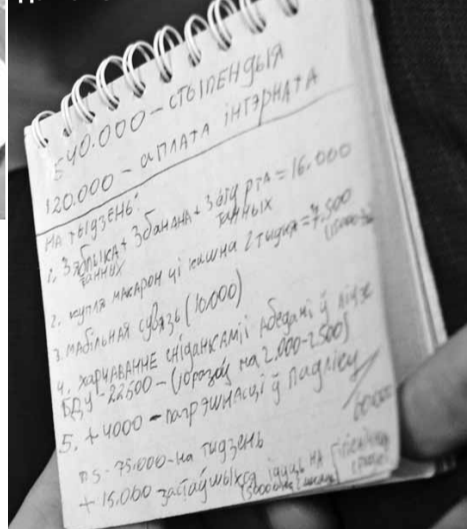 540.000 – СТЫПЕНДЫЯ
120.000 – аПЛАТА іНТЭРНАТА
НА ТЫДЗЕНЬ:
1. 3 яблыка + 3 банана + 3 ёгурта = 16.000
танных танных
2. купля макарон ці кашы на 2 тыдня = 7.500
3. МАБІЛЬНАЯ СУВЯЗЬ (10.000)
4. ХАРЧАВАННЕ СНіДАНКАМІ і Абедамі ў
БДУ – 22.500 – на 2.000-2500)
5. + 4000 – пагрэшнасці ў падліку
60.000
п s – 75.000 – на тыдзень
+ 15.000 заСТаўшыхся ідуць НА